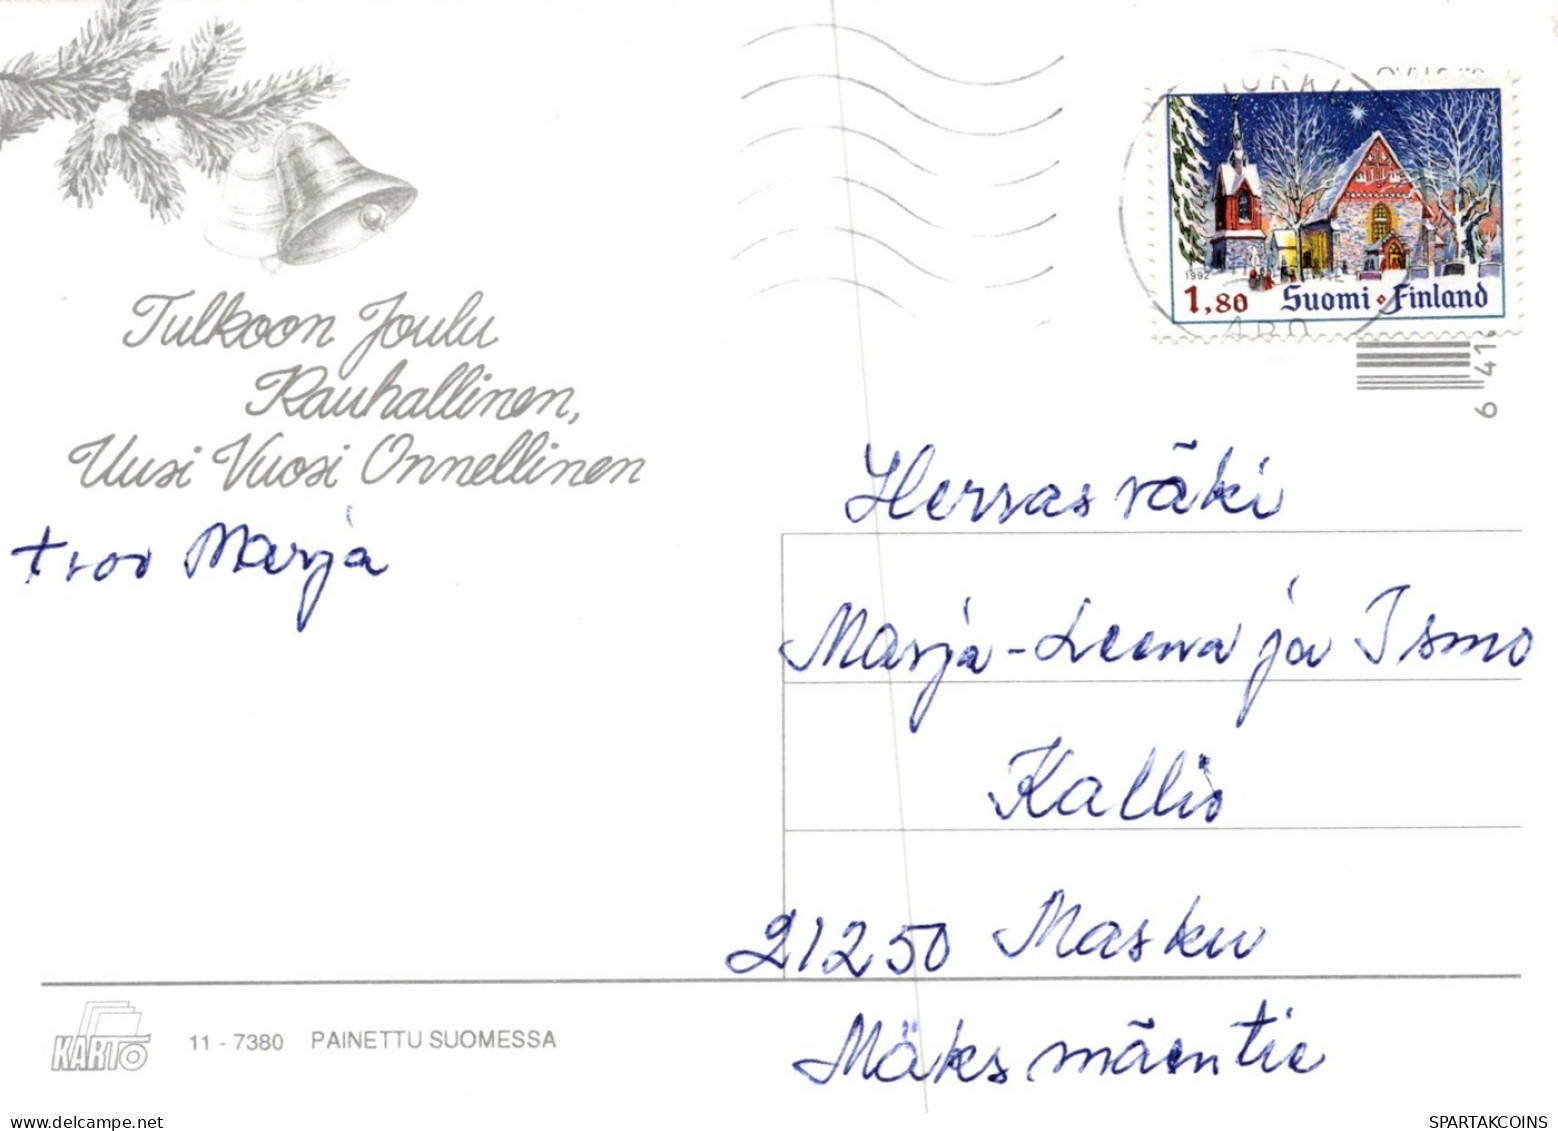 1992
1,80 Suomi Finland
ABO
6 41
Tulkoon Joulu
Rauhallinen,
Uusi Vuosi Onnellinen
Marja
Herrasväki
Marja-Leena ja Ismo
Kallio
21250 Masku
Mäksmäentie
KARTO
11 - 7380 PAINETTU SUOMESSA
SPARTAKCOINS